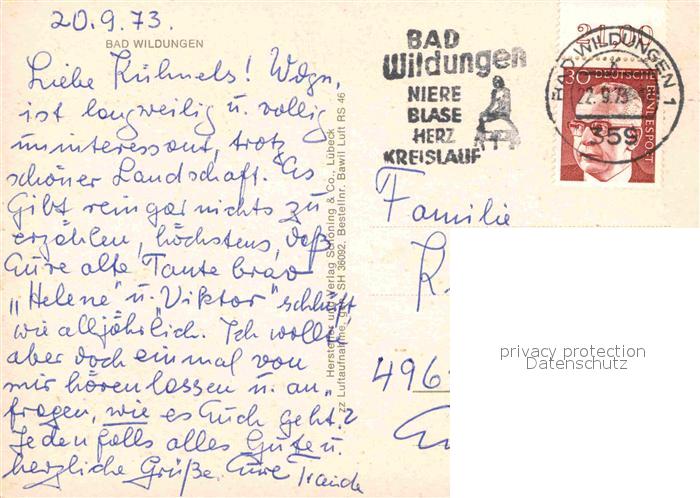 20.9.73.
BAD WILDUNGEN
Liebe Kühnels! Wdgn.
ist langweilig u. völlig
uninteressant, trotz
schöner Landschaft. Es
gibt rein gar nichts zu
erzählen, höchstens, daß
Eure alte Tante brav
„Helene" u. Viktor" schlürft
wie alljährlich. Ich wollte
aber doch einmal von
mir hören lassen u. an-
fragen, wie es Euch geht?
Jedenfalls alles Gute u.
herzliche Grüße. Eure
Hersteller und Verlag Schöning & Co., Lübeck
zz Luftaufnahme, SH 36092, Bestellnr. Bawil Luft RS 46
BAD
Wildungen
NIERE
BLASE
HERZ
KREISLAUF
BAD WILDUNGEN 1
22.-9.73
359
30 DEUTSCHE BUNDESPOST
Familie
K
496
privacy protection
Datenschutz